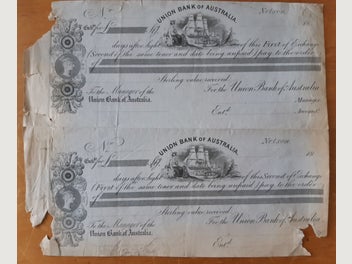 No UNION BANK OF AUSTRALIA Nelson 18
Exd. for £
days after sight of this First of Exchange
(Second of the same tenor and date being unpaid) pay to the order
Sterling value received
To the Manager of the For the Union Bank of Australia
Union Bank of Australia. Manager
Entd. Accountt.
No UNION BANK OF AUSTRALIA Nelson 18
Exd. for £
days after sight of this Second of Exchange
(First of the same tenor and date being unpaid) pay to the order
Sterling value received
To the Manager of the For the Union Bank of Australia
Union Bank of Australia.
Entd.